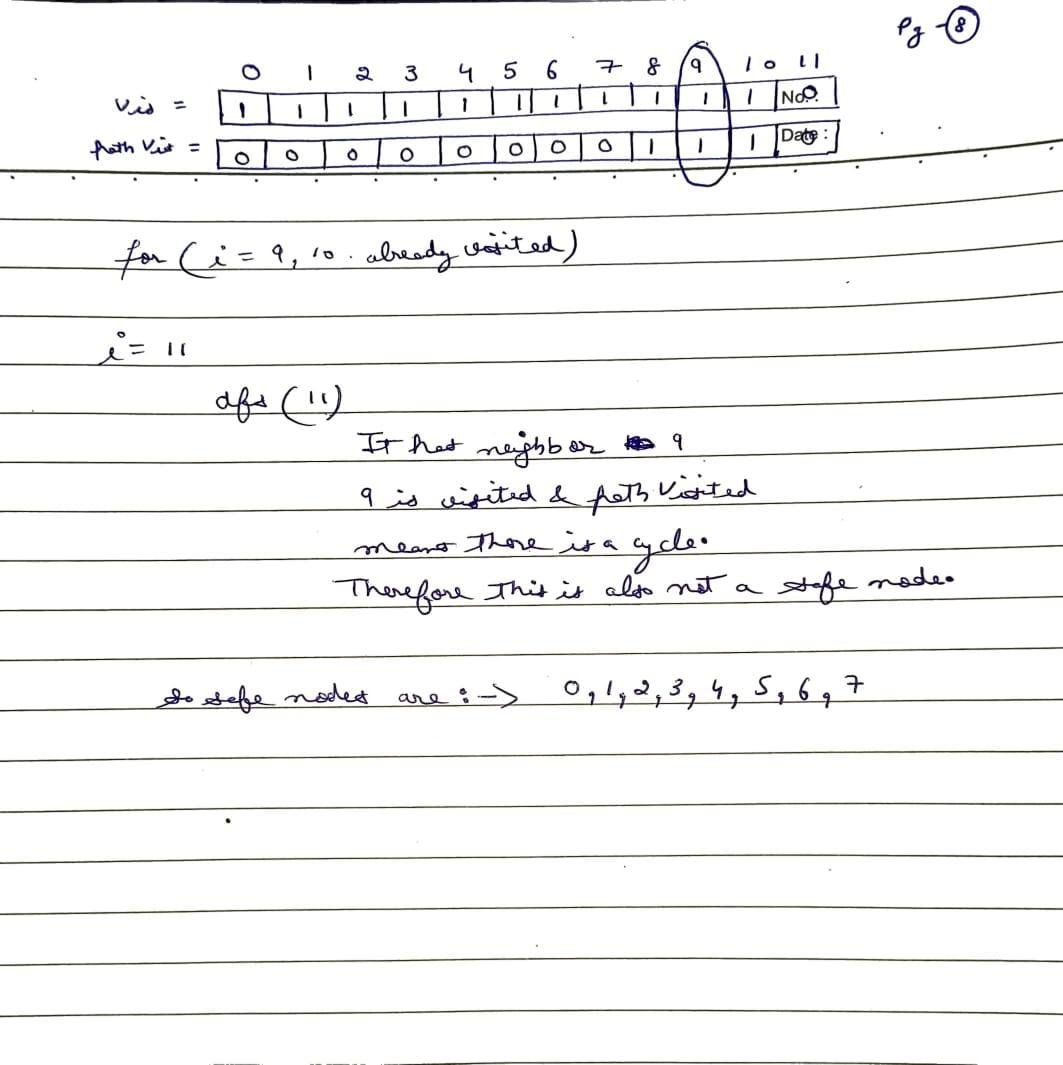 Pg - 8
0 1 2 3 4 5 6 7 8 9 10 11
Vis = 1 1 1 1 1 1 1 1 1 1 1 0 No.:
path Vis = 0 0 0 0 0 0 0 0 1 1 1 0 Date :
for (i = 9, 10. already visited)
i = 11
dfs (11)
It has neighbor 9
9 is visited & path Visited
means there is a cycle.
Therefore this is also not a safe node.
So safe nodes are :-> 0, 1, 2, 3, 4, 5, 6, 7